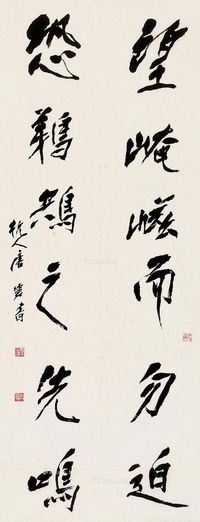 望崦嵫而勿迫
恐鹈鴂之先鳴
杭人唐雲書